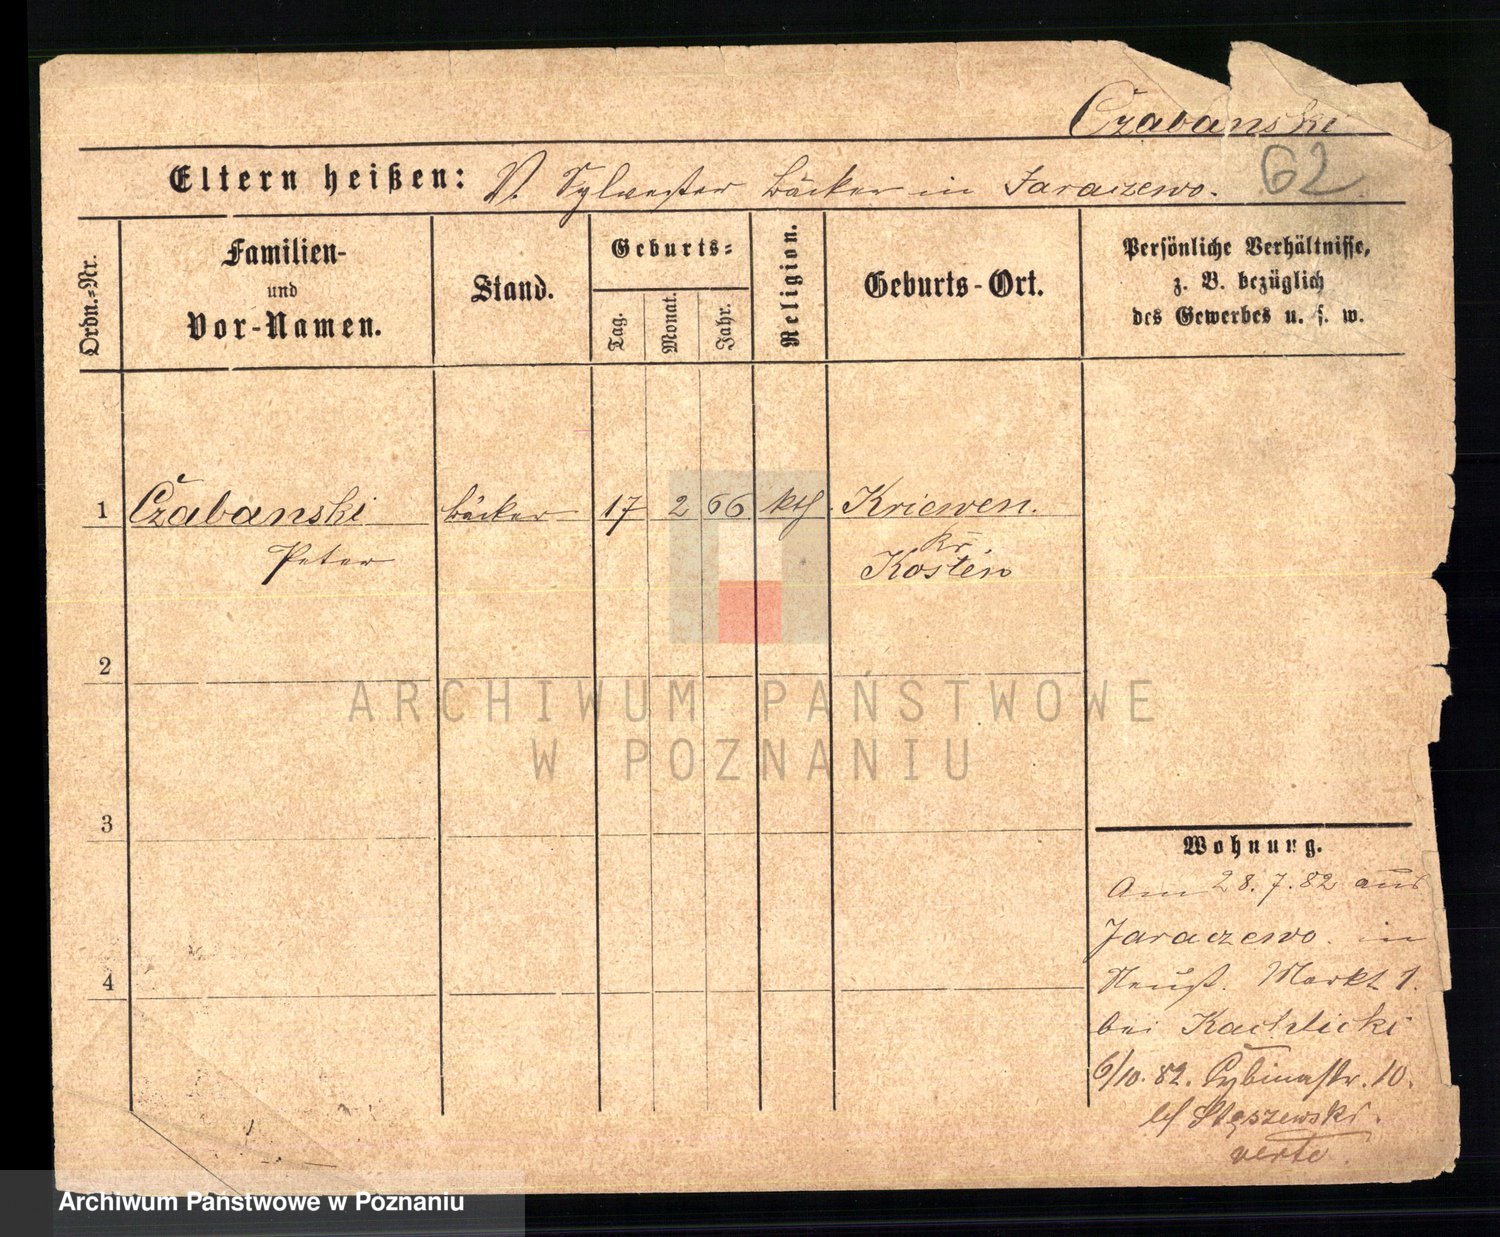 Czabanski
62
Eltern heißen: V. Sylvester Bäcker in Jaraczewo.
Ordn.-Nr.
Familien- und Vor-Namen.
Stand.
Geburts-
Tag. Monat. Jahr.
Religion.
Geburts-Ort.
Persönliche Verhältnisse,
z. B. bezüglich
des Gewerbes u. s. w.
1 Czabanski Bäcker 17 2 66 kth. Kriewen.
Peter Kr.
Kosten
2
3
4
ARCHIWUM PAŃSTWOWE
W POZNANIU
Wohnung.
Am 28.7.82 aus
Jaraczewo in
Neust. Markt 1.
bei Kachlicki
6/10.82. Cybinastr. 10.
bei Stęszewski.
verte.
Archiwum Państwowe w Poznaniu